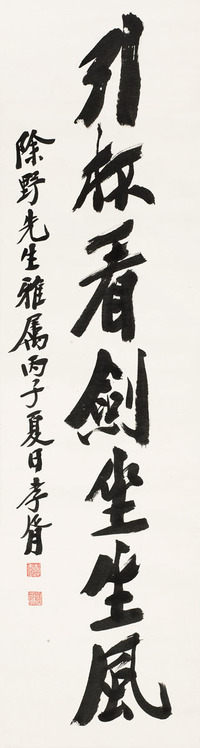 引杯看劍坐生風
除野先生雅属丙子夏日孝胥